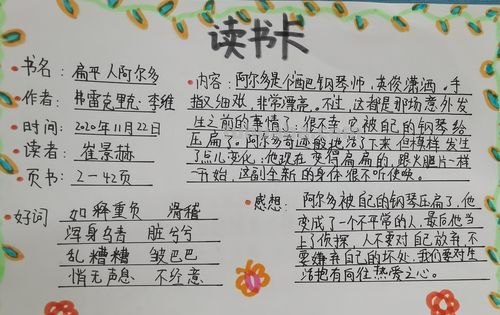 读书卡
书名：扁平人阿尔多
作者：弗雷克里克·李维
时间：2020年11月22日
读者：崔景赫
页书：2－42页
好词 如释重负 滑稽
浑身乌青 脏兮兮
乱糟糟 皱巴巴
悄无声息 不经意
内容：阿尔多是个酒巴钢琴师，英俊潇洒。手
指又细又长，非常漂亮。不过，这都是那场意外发
生之前的事情了；很不幸，它被自己的钢琴给
压扁了。阿尔多奇迹般地活了下来但模样发生
了点儿变化；他现在变得扁扁的，跟火腿片一样
一开始，这副全新的身体很不听使唤。
感想：阿尔多被自己的钢琴压扁了，他
变成了一个不平常的人，最后他当
上了侦探，人不要对自己放弃，不
要嫌弃自己的坏处，我们要对生
活抱有向往热爱之心。